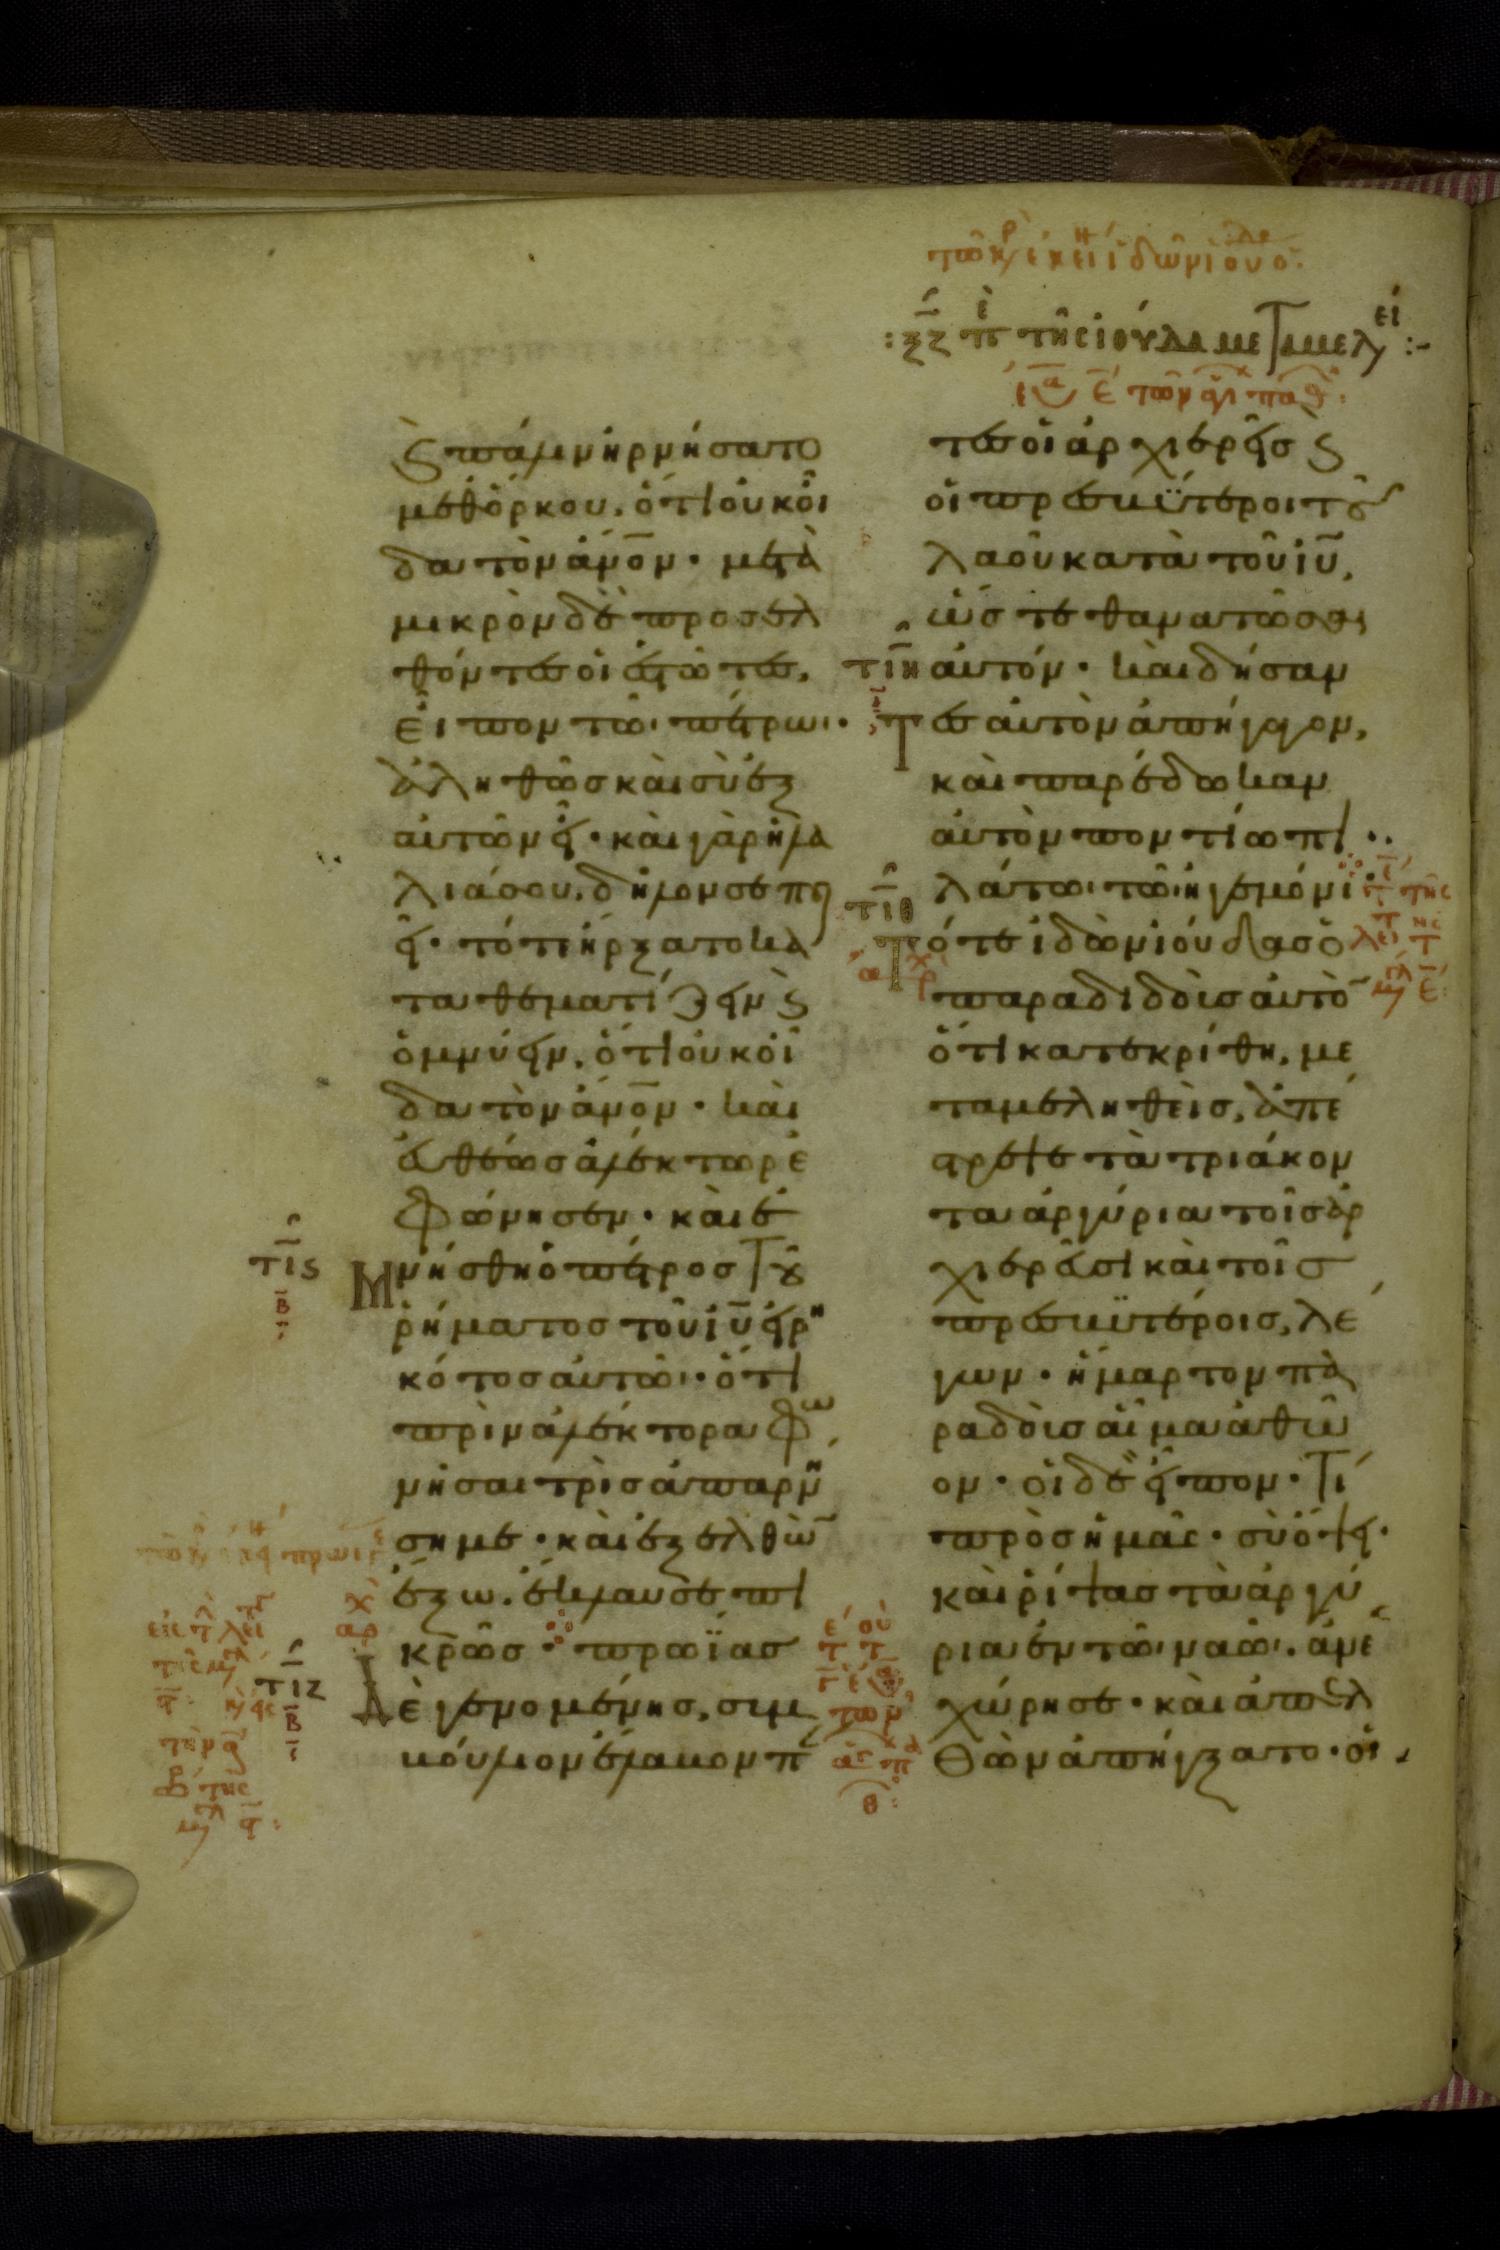 :ξζ πε τῆς ἰούδα μεταμελεί:-
ϛ πάλιν ἠρνήσατο
μεθ ὅρκου, ὅτι οὐκ οἶ
δα τὸν ἄνον· μετὰ
μικρὸν δὲ προσελ
θόντες οἱ ἑστῶτες,
εἶπον τῶ πέτρωι·
ἀληθῶς καὶ σὺ ἐξ
αὐτῶν εἶ· καὶ γὰρ ἡ λα
λιά σου, δῆλόν σε ποι
εῖ· τότε ἤρξατο κα
ταθεματίζειν ϛ
ὀμνύειν, ὅτι οὐκ οἶ
δα τὸν ἄνον· καὶ
εὐθέως ἀλέκτωρ ἐ
φώνησεν· καὶ ἐ
τις
Μνήσθη ὁ πέτρος τοῦ
ῥήματος τοῦ ἰυ εἰρη
κότος αὐτῶ· ὅτι
πρὶν ἀλέκτορα φω
νῆσαι τρὶς ἀπαρνή
ση με· καὶ ἐξελθὼν
ἔξω, ἔκλαυσε πι
κρῶς· πρωΐας
τιζ
Δὲ γενομένης, συμ
βούλιον ἔλαβον πάν
τες οἱ ἀρχιερεῖς ϛ
οἱ πρεσβύτεροι τοῦ
λαοῦ κατὰ τοῦ ἰυ,
ὥστε θανατῶσαι
τιη
αὐτόν· καὶ δήσαν
Τες αὐτὸν ἀπήγαγον,
καὶ παρέδωκαν
αὐτὸν ποντίω πι
λάτω τῶ ἡγεμόνι·
τιθ
Τότε ἰδὼν ἰούδας ὁ
παραδιδοὺς αὐτὸν
ὅτι κατεκρίθη, με
ταμεληθεὶς, ἀπέ
στρεψε τὰ τριάκον
τα ἀργύρια τοῖς ἀρ
χιερεῦσι καὶ τοῖς
πρεσβυτέροις, λέ
γων· ἥμαρτον πα
ραδοὺς αἷμα ἀθῶ
ον· οἱ δὲ εἶπον· τί
πρὸς ἡμᾶς· σὺ ὄψει·
καὶ ῥίψας τὰ ἀργύ
ρια ἐν τῶ ναῶ, ἀνε
χώρησε· καὶ ἀπελ
θὼν ἀπήγξατο· οἱ